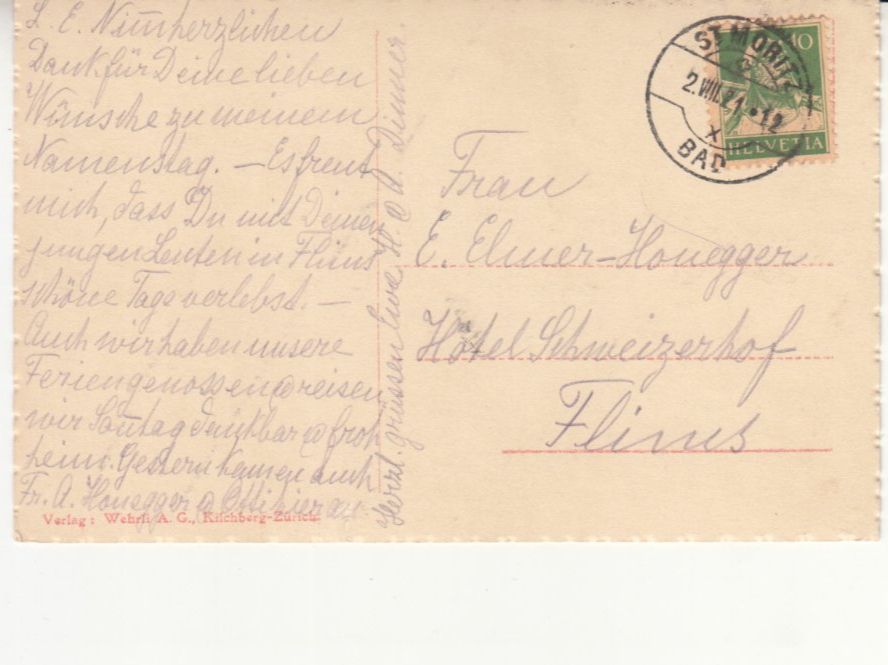 L. E. Nimm herzlichen
Dank für Deine lieben
Wünsche zu meinem
Namenstag. – Es freut
mich, dass Du mit Deinen
jungen Leuten in Flims
schöne Tage verlebst. –
Auch wir haben unsere
Ferien genossen & reisen
wir Sontag dankbar & froh
heim. Gestern kamen auch
Fr. A. Honegger & Otti hier an
Herzl. grüssen Euch H. & A. Dinner.
Verlag: Wehrli A. G., Kilchberg-Zürich.
ST. MORITZ
2.VIII.21.•12
X
BAD
10
HELVETIA
Frau
E. Elmer-Honegger
Hôtel Schweizerhof
Flims